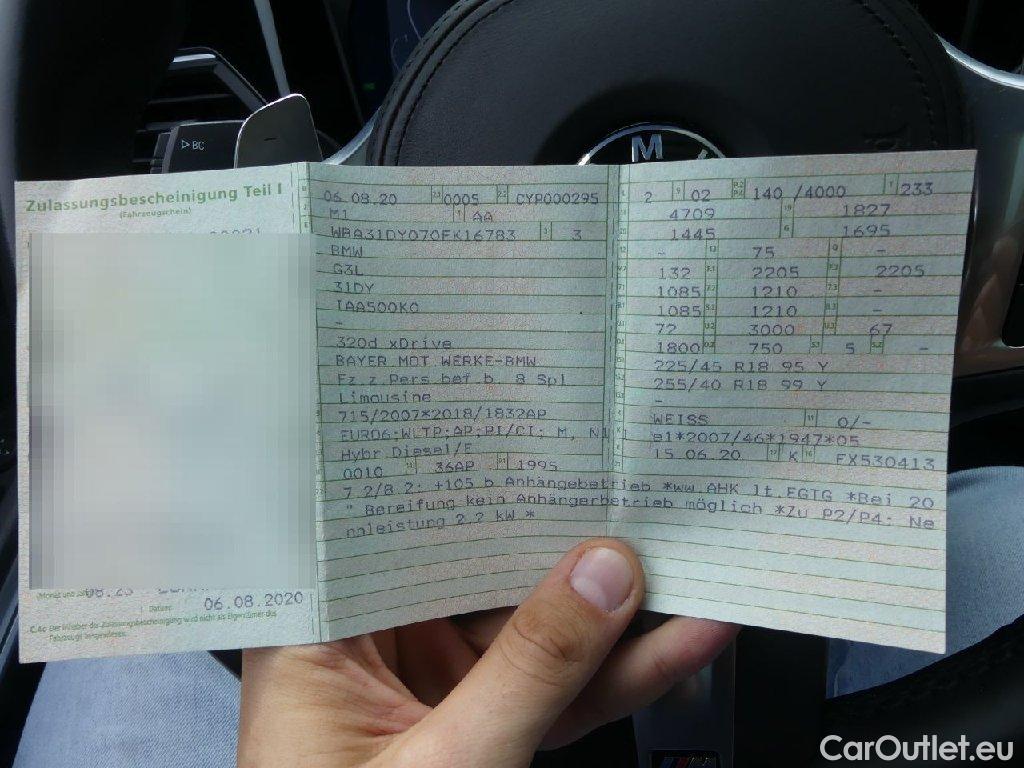 ▷BC
M
Zulassungsbescheinigung Teil I
(Fahrzeugschein)
06.08.20 0005 CYP000295
M1 AA
WBA31DY070FK16783 3
BMW
G3L
31DY
IAA500K0
-
320d xDrive
BAYER.MOT.WERKE-BMW
Fz.z.Pers.bef.b. 8 Spl
Limousine
715/2007*2018/1832AP
EURO6;WLTP;AP;PI/CI; M, N1 I
Hybr.Diesel/E
0010 36AP 1995
2 02 140 /4000 233
4709 1827
1445 1695
- 75 -
132 2205 2205
1085 1210 -
1085 1210 -
72 3000 67
1800 750 5 -
225/45 R18 95 Y
255/40 R18 99 Y
-
WEISS 0/-
e1*2007/46*1947*05
15.06.20 K FX530413
7.2/8.2: +105 b.Anhängebetrieb *ww.AHK lt.EGTG *Bei 20
" Bereifung kein Anhängerbetrieb möglich *Zu P2/P4: Ne
nnleistung 2.2 kW *
08.23
Datum: 06.08.2020
C.4c Der Inhaber der Zulassungsbescheinigung wird nicht als Eigentümer des
Fahrzeugs ausgewiesen.
CarOutlet.eu